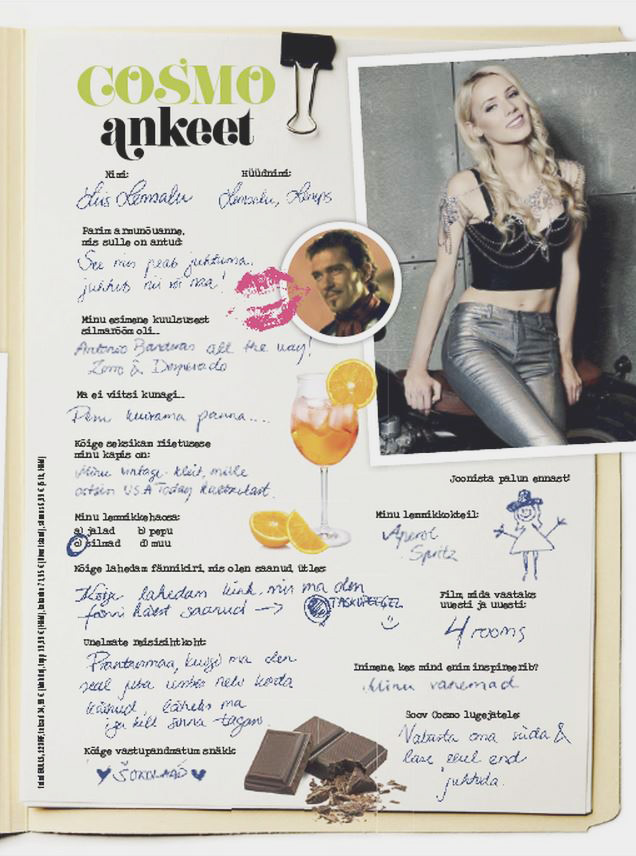 COSMO
ankeet
Nimi:
Hüüdnimi:
Liis Lemsalu
Lemsalu, Lemps
Parim armunõuanne,
mis sulle on antud:
See mis peab juhtuma,
juhtub nii või naa!
Minu esimene kuulsusest
silmarõõm oli...
Antonio Banderas all the way!
Zorro & Desperado
Ma ei viitsi kunagi...
Pesu kuivama panna....
Kõige seksikam riietusese
minu kapis on:
Minu vintage kleit, mille
ostsin USA Today kaltsukast.
Minu lemmikkehaosa:
a) jalad b) pepu
c) silmad d) muu
Kõige lahedam fännikiri, mis olen saanud, ütles
Kõige lahedam kink, mis ma olen
fänni käest saanud → TASKUPEEGEL
Unelmate reisisihtkoht:
Prantsusmaa, kuigi ma olen
seal juba umbes neli korda
käinud, läheks ma
iga kell sinna tagasi.
Kõige vastupandmatum snäkk:
ŠOKOLAAD
Joonista palun ennast!
Minu lemmikkokteil:
Aperol
Spritz
Film, mida vaataks
uuesti ja uuesti:
4 rooms
Inimene, kes mind enim inspireerib?
Minu vanemad
Soov Cosmo lugejatele:
Vabasta oma süda &
lase elul end
juhtida.